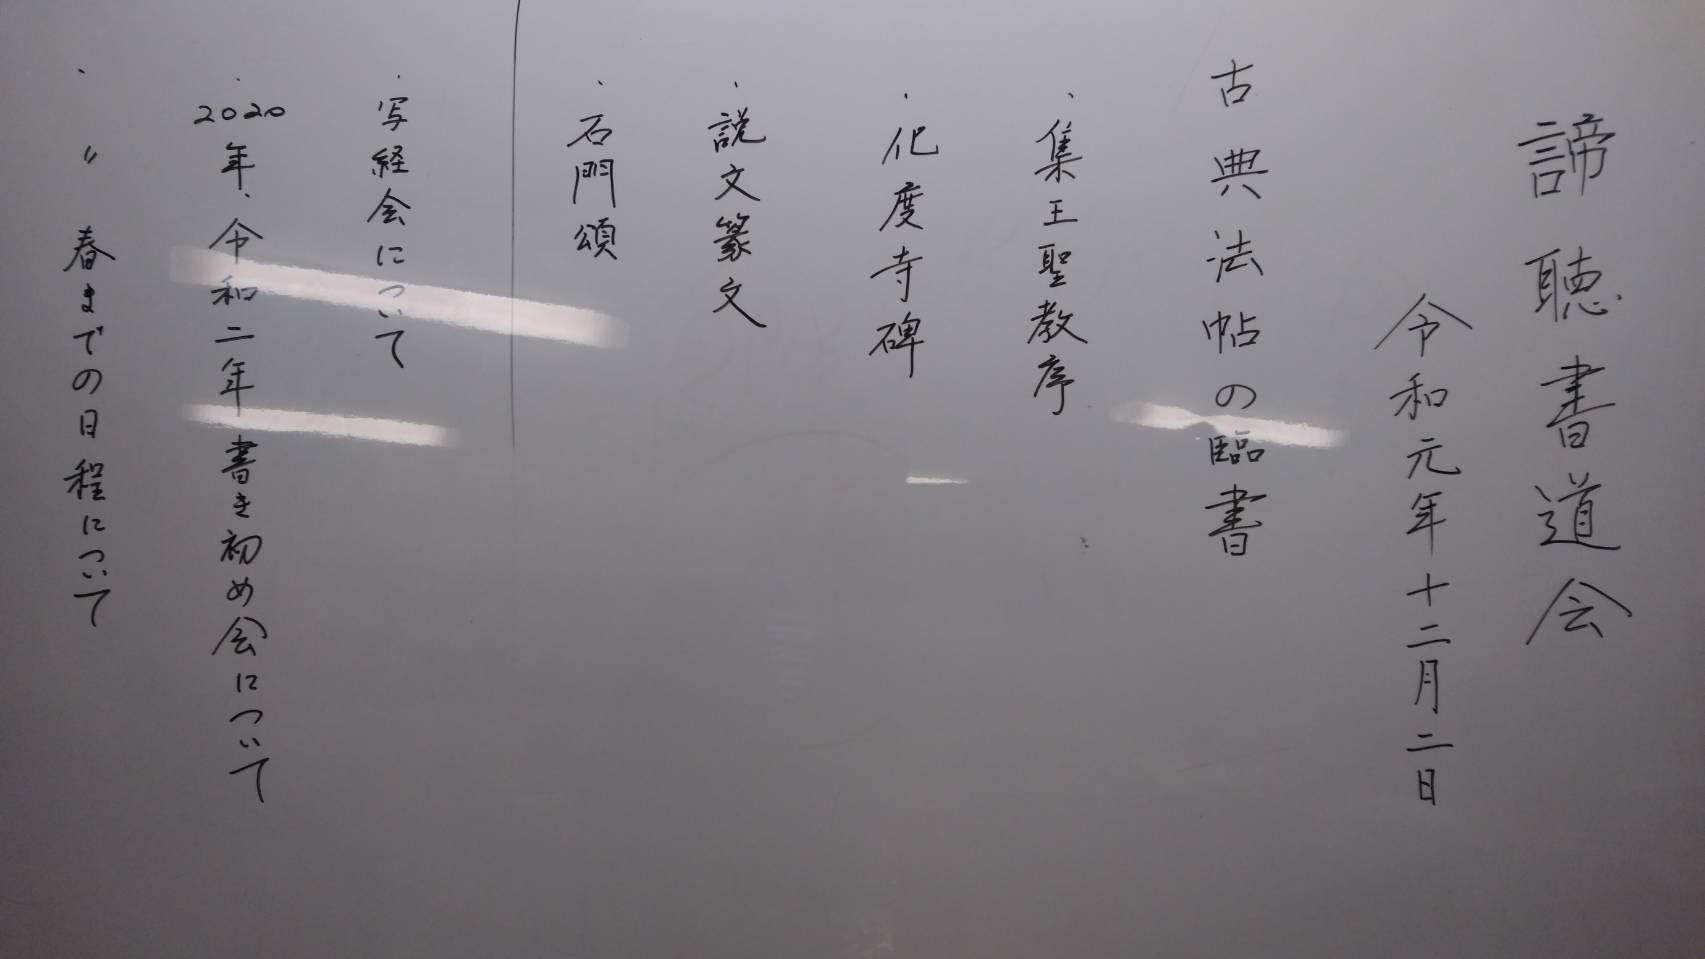 諦聴書道会
令和元年十二月二日
古典法帖の臨書
・集王聖教序
・化度寺碑
・説文篆文
・石門頌
・写経会について
・2020年、令和二年書き初め会について
・〃春までの日程について